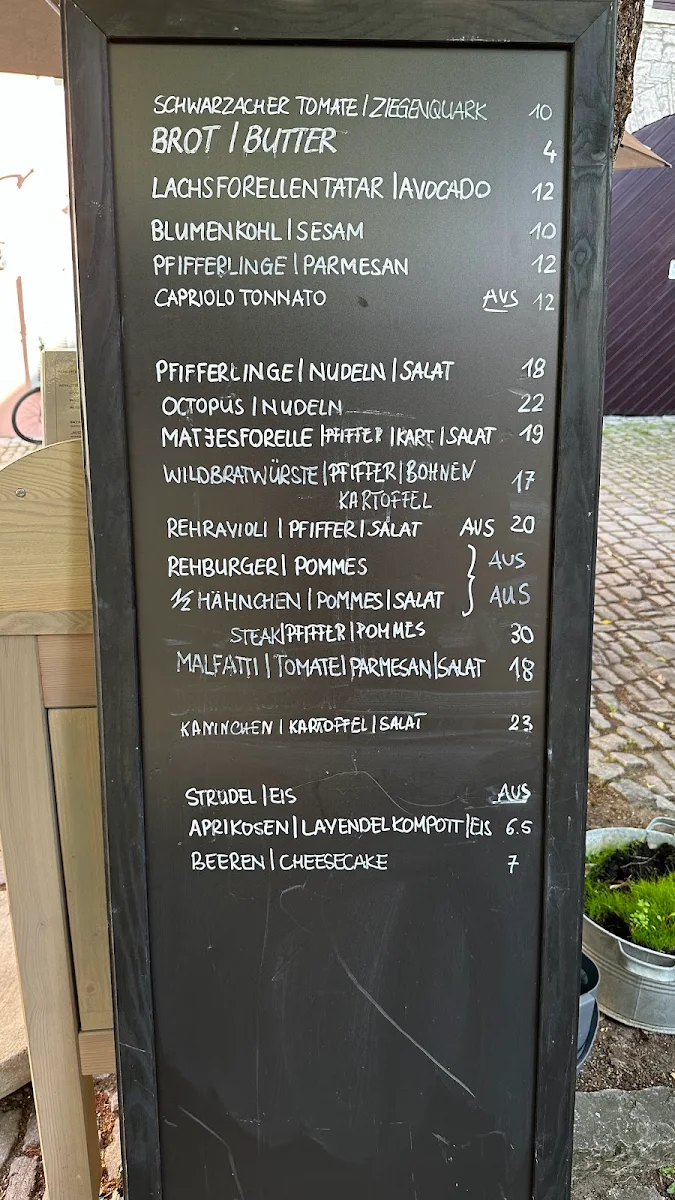 SCHWARZACHER TOMATE | ZIEGENQUARK 10
BROT | BUTTER 4
LACHSFORELLENTATAR | AVOCADO 12
BLUMENKOHL | SESAM 10
PFIFFERLINGE | PARMESAN 12
CAPRIOLO TONNATO AUS 12
PFIFFERLINGE | NUDELN | SALAT 18
OCTOPUS | NUDELN 22
MATJESFORELLE | PFIFFER | KART. | SALAT 19
WILDBRATWÜRSTE | PFIFFER | BOHNEN 17
KARTOFFEL
REHRAVIOLI | PFIFFER | SALAT AUS 20
REHBURGER | POMMES } AUS
1/2 HÄHNCHEN | POMMES | SALAT } AUS
STEAK | PFIFFER | POMMES 30
MALFATTI | TOMATE | PARMESAN | SALAT 18
KANINCHEN | KARTOFFEL | SALAT 23
STRUDEL | EIS AUS
APRIKOSEN | LAVENDELKOMPOTT | EIS 6.5
BEEREN | CHEESECAKE 7